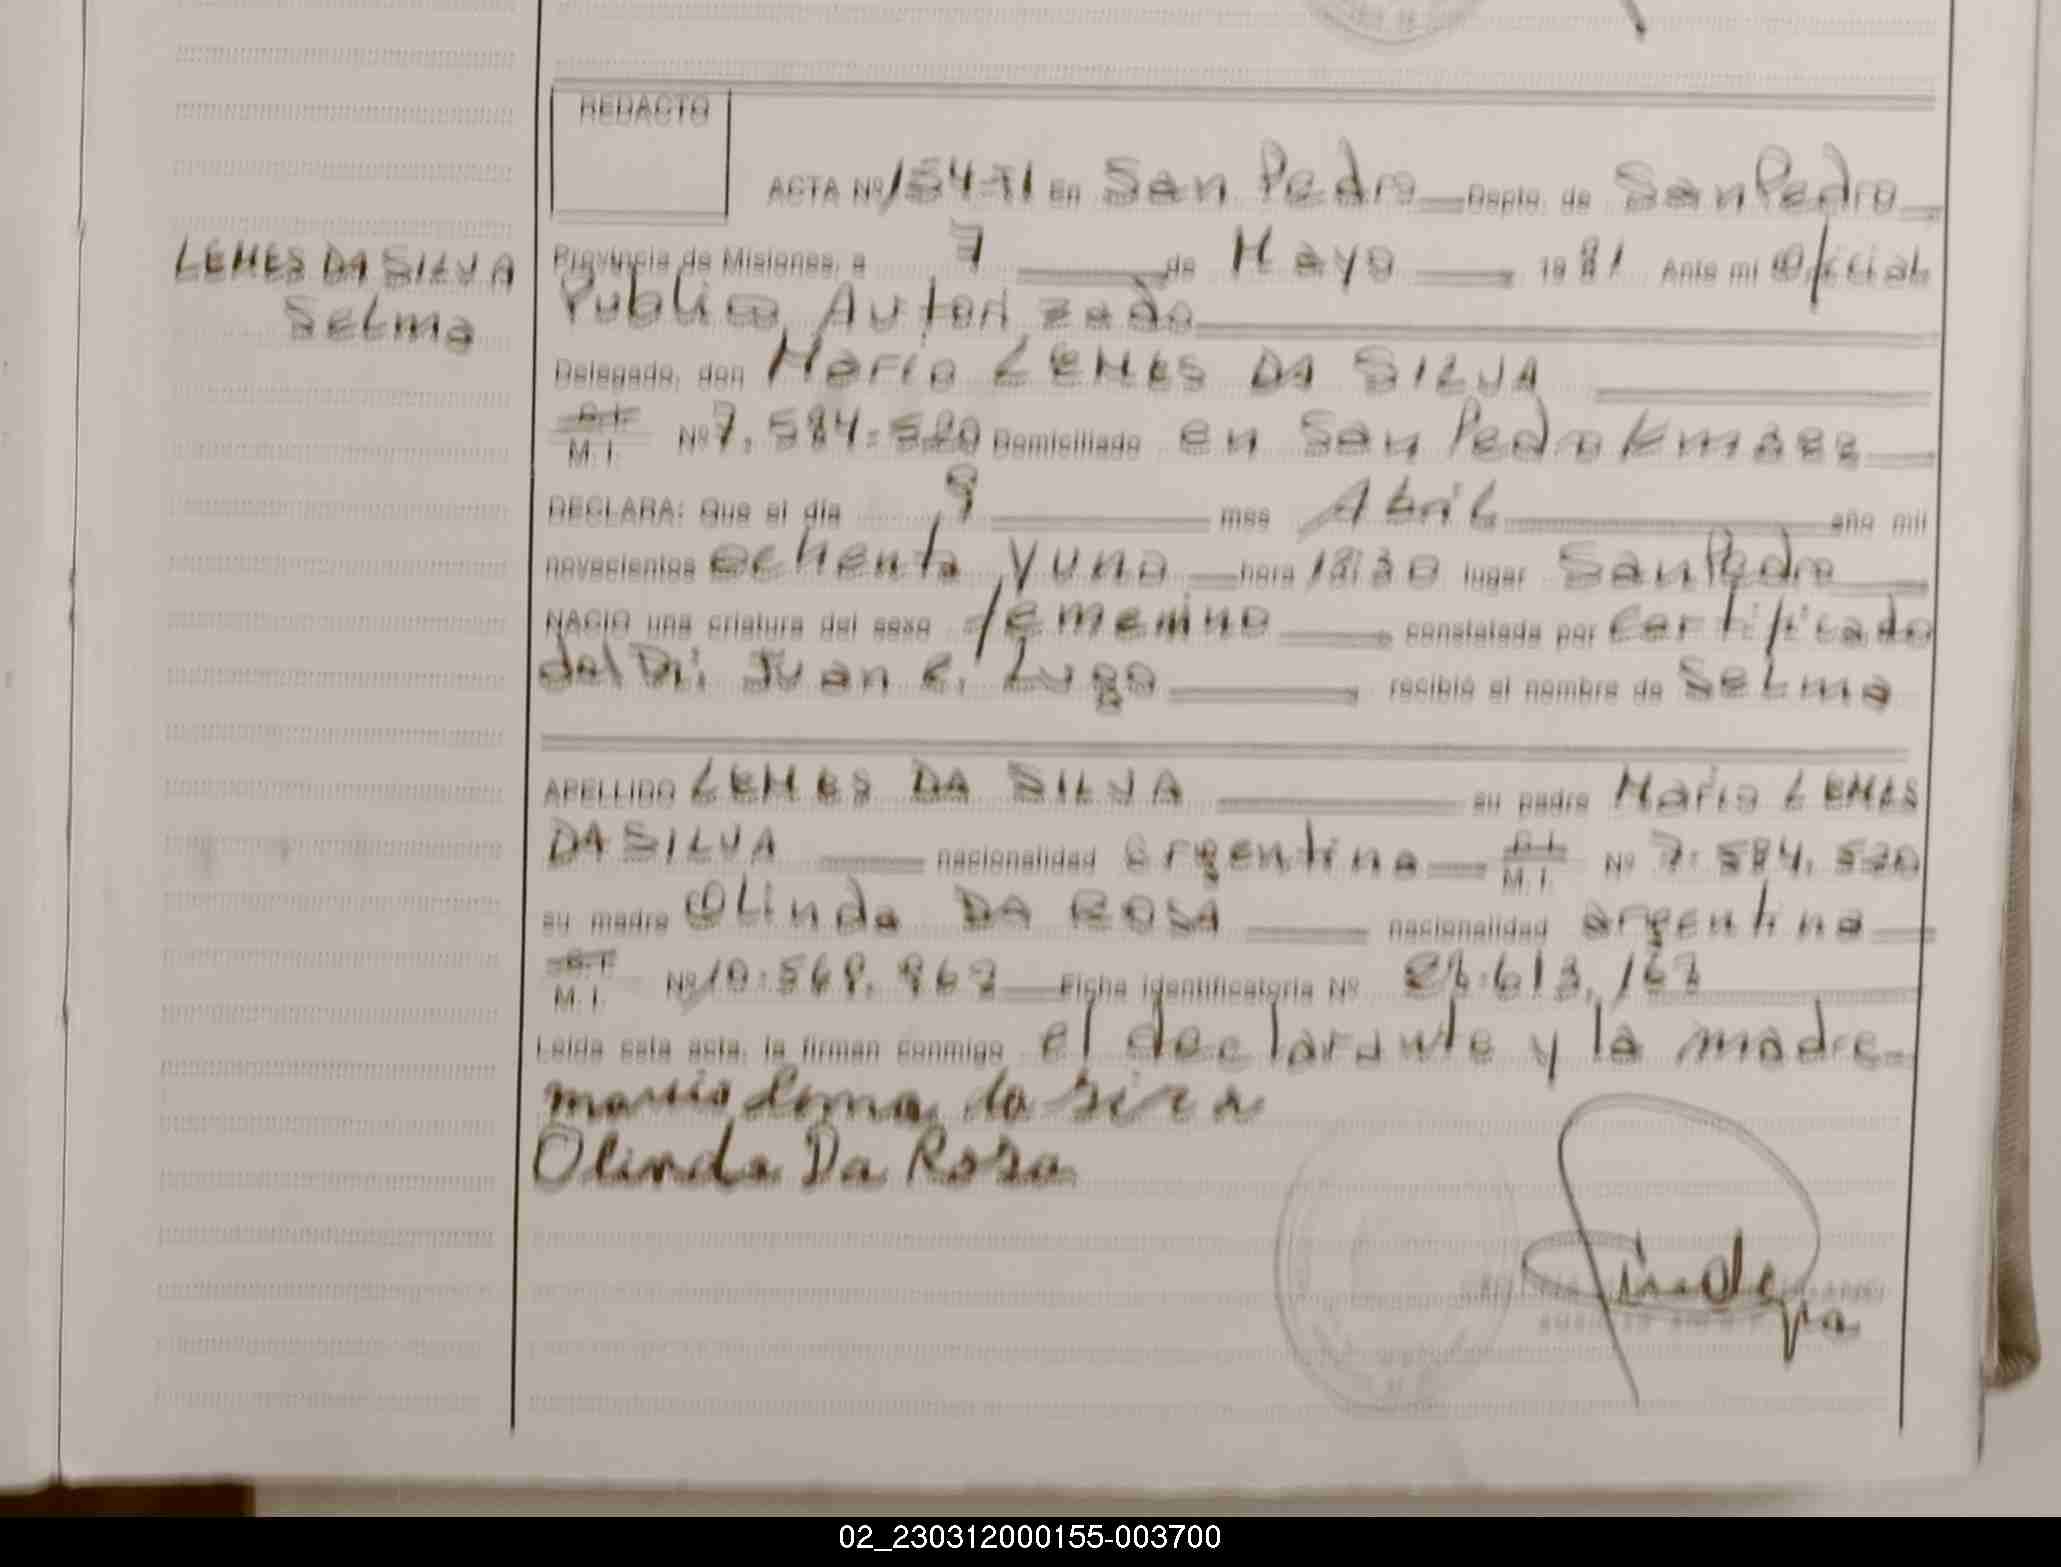 REDACTO
ACTA Nº 154-TI En San Pedro Depto. de San Pedro
LEMES DA SILVA
Selma
Provincia de Misiones, a 7 de Mayo 1981 Ante mi Oficial
Publico Autorizado
Delegado, don Mario LEMES DA SILVA
C.I. M.I. Nº 7.584.520 Domiciliado en San Pedro
DECLARA: Que el día 9 mes Abril año mil
novecientos ochenta y uno hora lugar San Pedro
NACIO una criatura del sexo femenino constatada por certificado
del Dr. Juan C. Lugo recibió el nombre de Selma
APELLIDO LEMES DA SILVA su padre Mario LEMES
DA SILVA nacionalidad argentina C.I. M.I. Nº 7.584.520
su madre Olinda DA ROSA nacionalidad argentina
C.I. M.I. Nº Ficha identificatoria Nº
Leída esta acta, la firman conmigo el declarante y la madre
Olinda Da Rosa
02_230312000155-003700